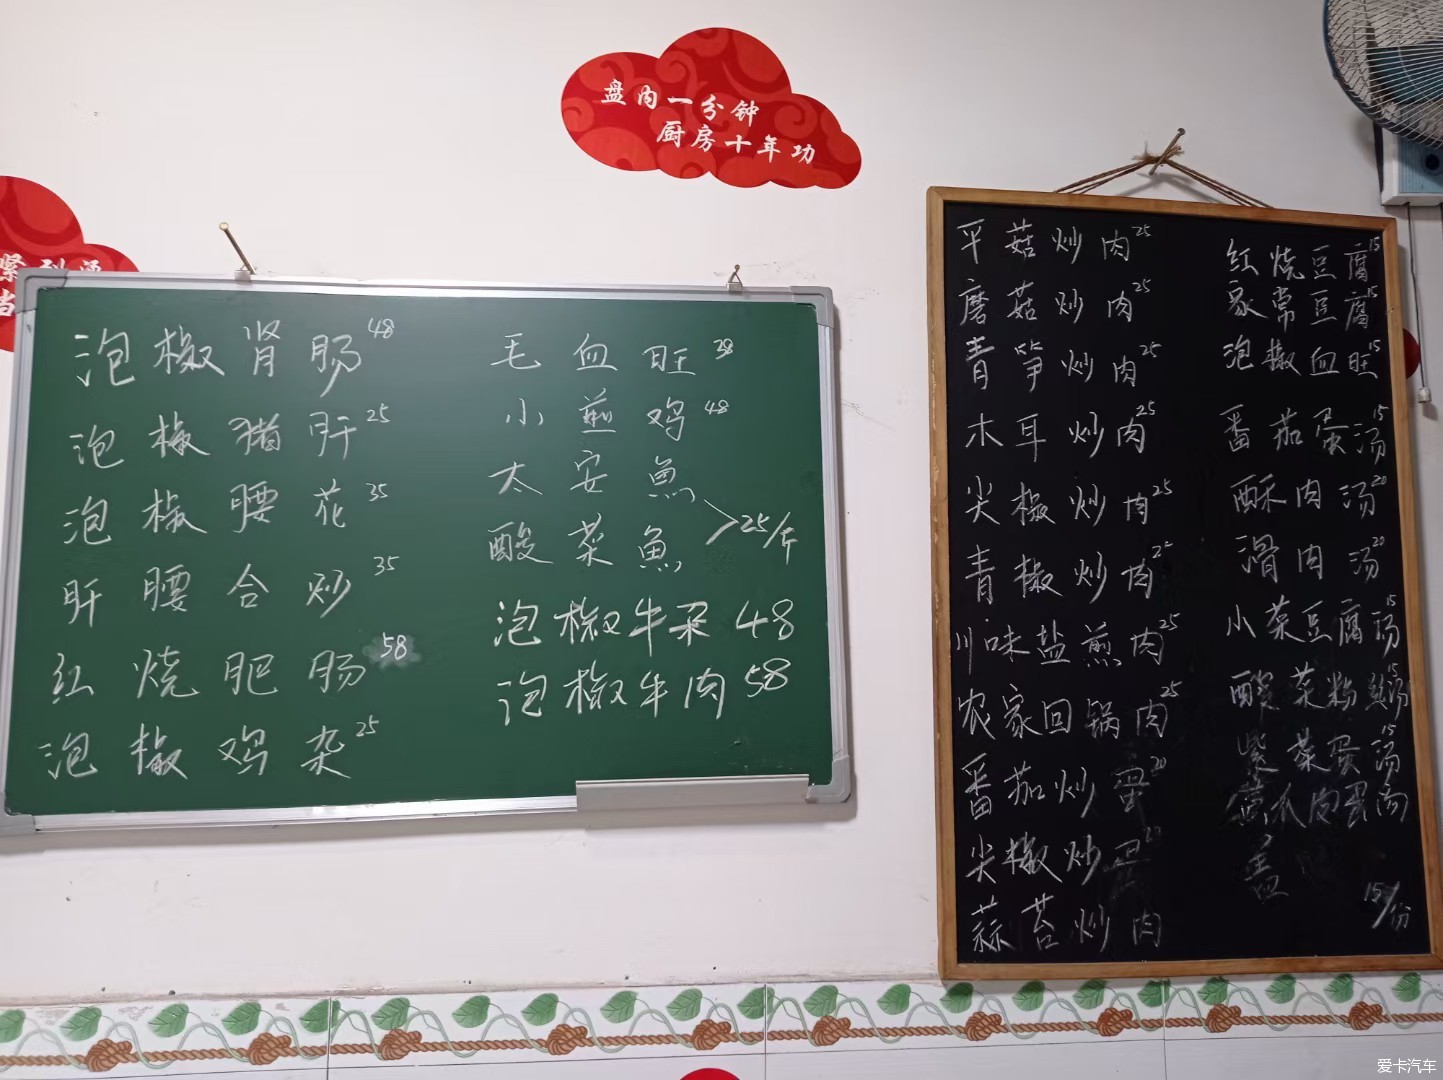 盘内一分钟
厨房十年功
泡椒肾肠48
泡椒猪肝25
泡椒腰花35
肝腰合炒35
红烧肥肠58
泡椒鸡杂25
毛血旺38
小煎鸡48
太安魚
酸菜魚
25/斤
泡椒牛朵48
泡椒牛肉58
平菇炒肉25
磨菇炒肉25
青笋炒肉25
木耳炒肉25
尖椒炒肉25
青椒炒肉25
川味盐煎肉25
农家回锅肉25
番茄炒蛋20
尖椒炒蛋
蒜苔炒肉
红烧豆腐15
家常豆腐15
泡椒血旺15
番茄蛋汤15
酥肉汤20
滑肉汤20
小菜豆腐汤15
酸菜粉丝汤15
紫菜蛋汤15
黄瓜皮蛋汤
盖
15/份
爱卡汽车